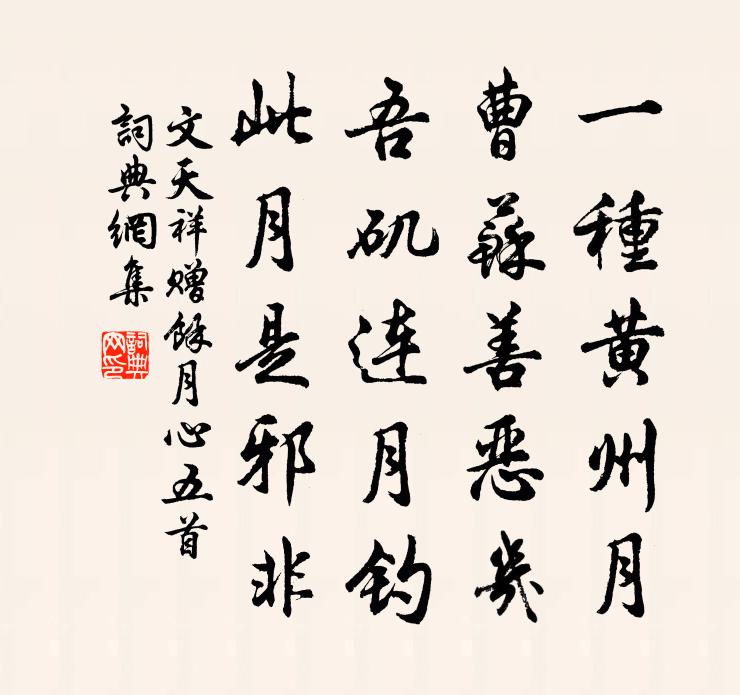 一種黄州月
曹蘇善惡幾
吾矶連月钓
此月是邪非
文天祥赠餘月心五首
詞典網集
詞典網印